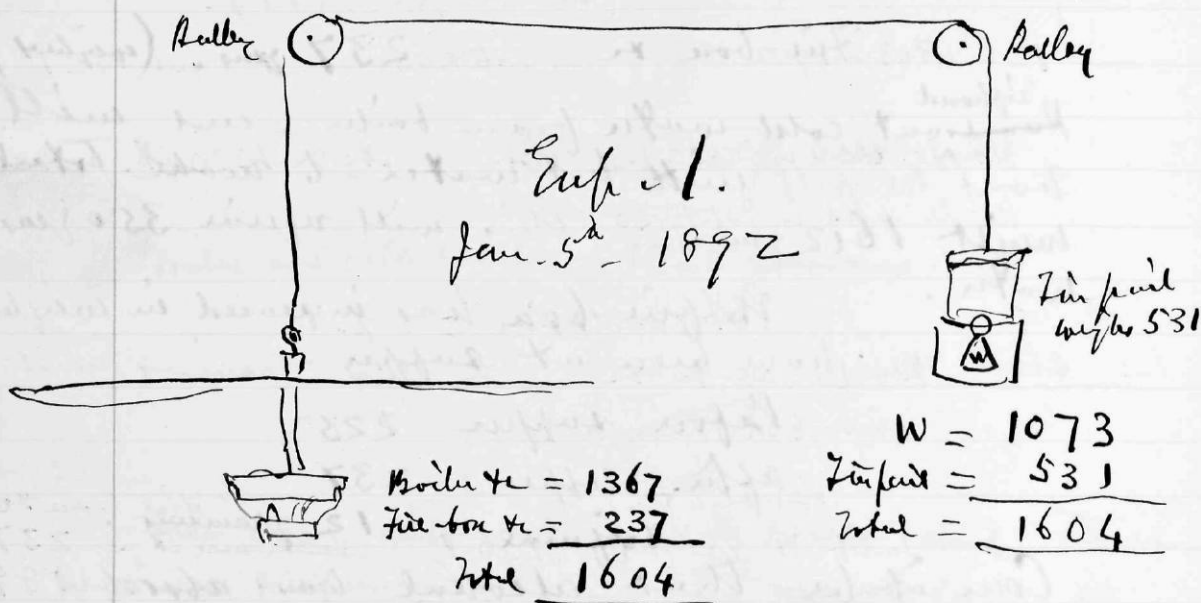 Pulley
Pulley
Exp. 1.
Jan. 5th - 1892
Tin pail
weighs 531
W
Boiler &c = 1367
Fire box &c = 237
Total 1604
W = 1073
Tin pail = 531
Total = 1604